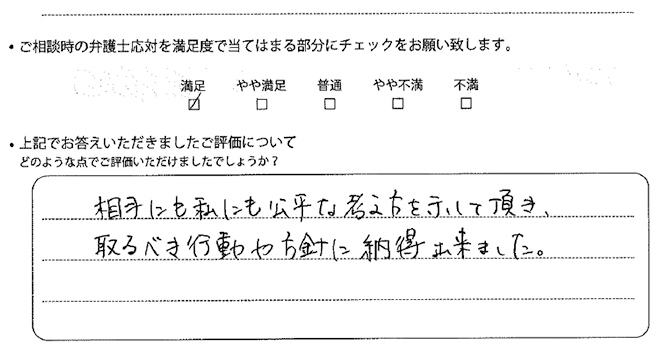 ・ご相談時の弁護士応対を満足度で当てはまる部分にチェックをお願い致します。
満足 やや満足 普通 やや不満 不満
☑ □ □ □ □
・上記でお答えいただきましたご評価について
どのような点でご評価いただけましたでしょうか？
相手にも私にも公平な考え方を示して頂き、
取るべき行動や方針に納得出来ました。